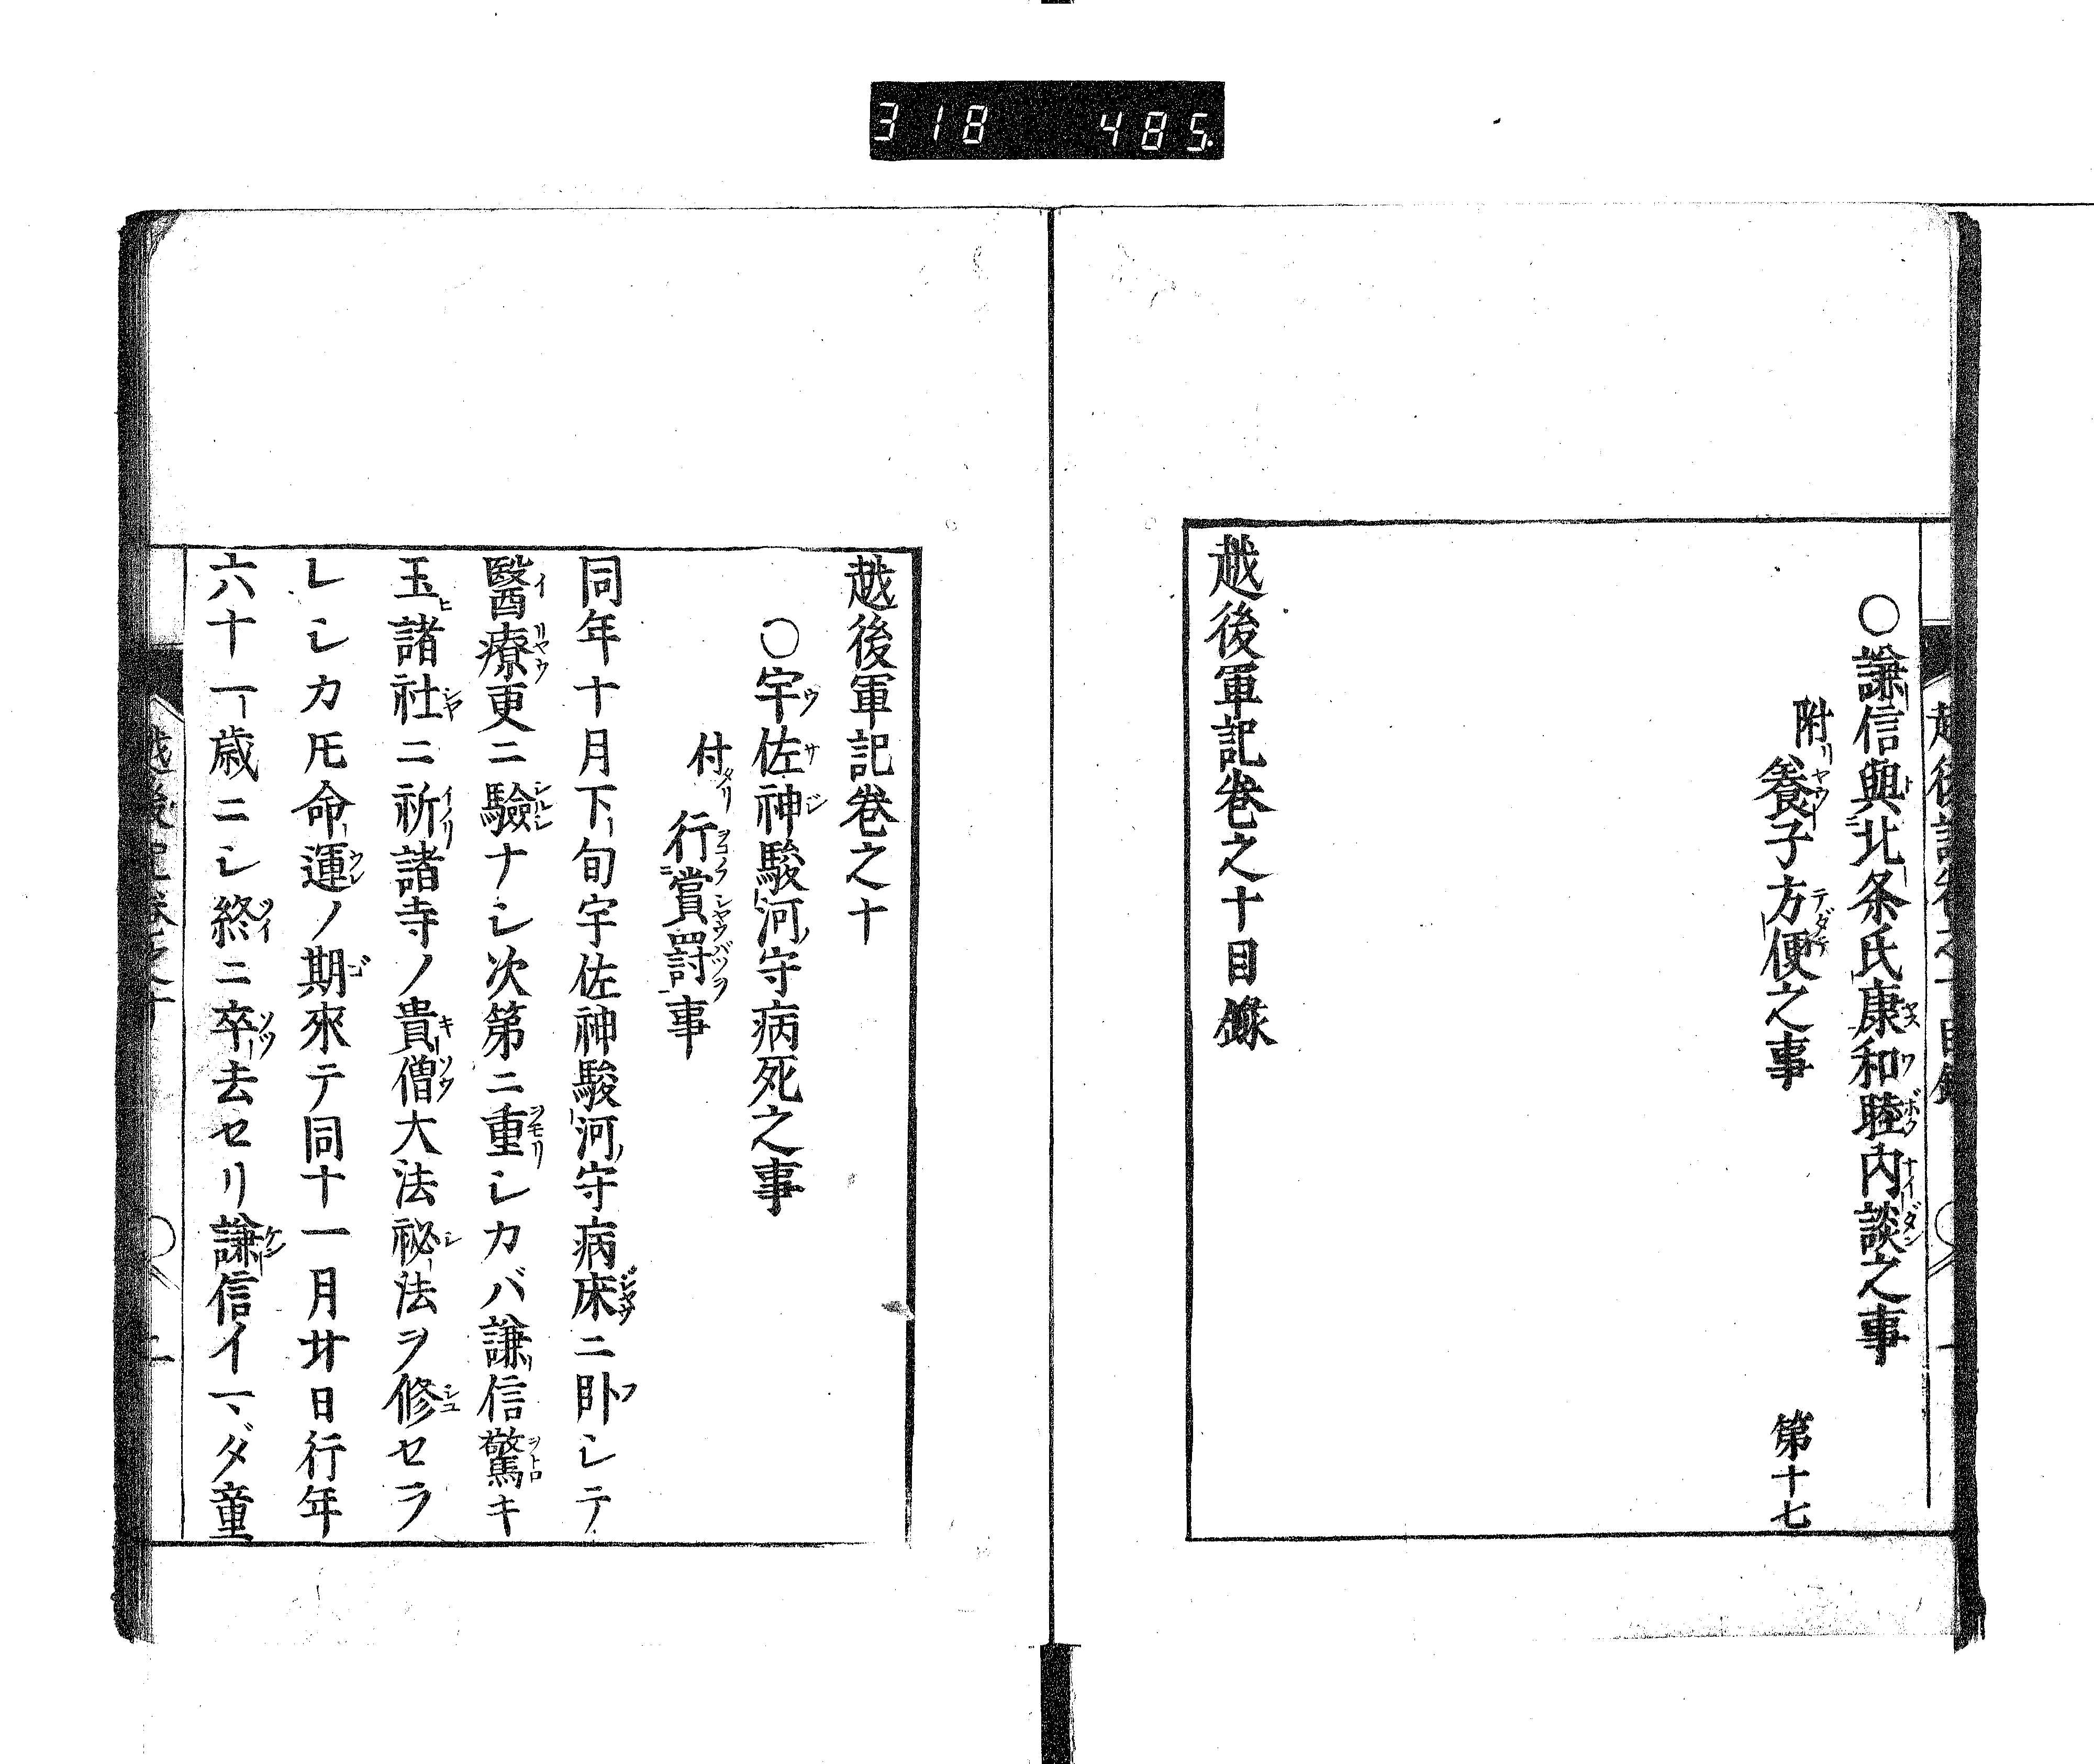 318 485
○謙信與北条氏康和睦内談之事
附リ養子方便之事 第十七
越後軍記巻之十目錄
越後軍記巻之十
○宇佐神駿河守病死之事
付タリ行賞罸事
同年十月下旬宇佐神駿河ノ守病床ニ卧シテ
醫療更ニ驗ナシ次第ニ重シカバ謙信驚キ
玉ヒ諸社ニ祈諸寺ノ貴僧大法祕法ヲ修セラ
レシカ𪜈命運ノ期來テ同十一月廿日行年
六十一歳ニシ終ニ卒去セリ謙信イマダ童